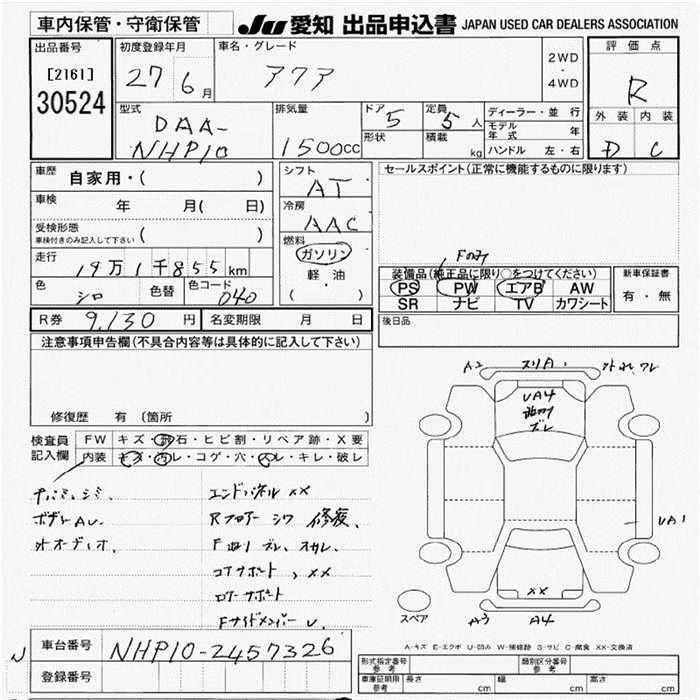 車内保管・守衛保管
JU 愛知 出品申込書 JAPAN USED CAR DEALERS ASSOCIATION
出品番号
[2161]
30524
初度登録年月
27 6月
車名・グレード
アクア
2WD
・
4WD
評価点
R
外装 内装
D C
型式
DAA-
NHP10
排気量
1500cc
ドア 5
形状
定員 5人
積載 kg
ディーラー・並行
モデル年式 年
ハンドル 左・右
車歴 自家用・( )
車検 年 月( 日)
受検形態
車検付きのみ記入して下さい ( )
走行 19万1千855km
色 シロ 色替 色コード 040
シフト
AT
冷房
AAC
燃料
ガソリン
軽油
( )
セールスポイント(正常に機能するものに限ります)
Fのみ
装備品(純正品に限り○をつけてください)
PS PW エアB AW
SR ナビ TV カワシート
新車保証書
有・無
後日品
R券 9,130円 名変期限 月 日
注意事項申告欄(不具合内容等は具体的に記入して下さい)
修復歴 有 (箇所 )
検査員
記入欄
FW キズ・飛石・ヒビ割・リペア跡・X要
内装 キズ・汚レ・コゲ・穴・ハレ・キレ・破レ
ボデーAU.
オーディオ.
エンドパネル XX
Rフロアー シワ 修復.
コアサポート, XX
ロアサポート
Fサイドメンバー U.
A2 スリA.
UA4
ズレ
UA1
XX
A3 A4
スペア
A-キズ E-エクボ U-凹み W-補修跡 S-サビ C-腐食 XX-交換済
車台番号 NHP10-2457326
登録番号
形式指定番号
参考
類別区分番号
参考
車庫証明用
参考
長さ cm 幅 cm 高さ cm